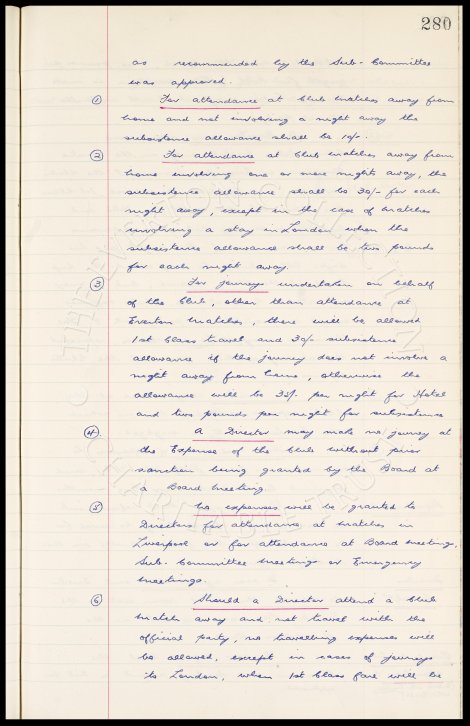 280
as recommended by the Sub-Committee
was approved.
① For attendance at Club matches away from
home and not involving a night away the
subsistence allowance shall be 10/-.
② For attendance at Club matches away from
home involving one or more nights away, the
subsistence allowance shall be 30/- for each
night away, except in the case of matches
involving a stay in London when the
subsistence allowance shall be two pounds
for each night away.
③ For journeys undertaken on behalf
of the Club, other than attendance at
Everton matches, there will be allowed
1st Class travel and 30/- subsistence
allowance if the journey does not involve a
night away from home, otherwise the
allowance will be per night for Hotel
and two pounds per night for subsistence
④ A Director may make no journey at
the Expense of the Club without prior
sanction being granted by the Board at
a Board Meeting.
⑤ No expenses will be granted to
Directors for attendance at matches in
Liverpool or for attendance at Board Meetings,
Sub-Committee Meetings or Emergency
meetings.
⑥ Should a Director attend a Club
match away and not travel with the
official party, no travelling expenses will
be allowed, except in cases of journeys
to London, when 1st Class fare will be